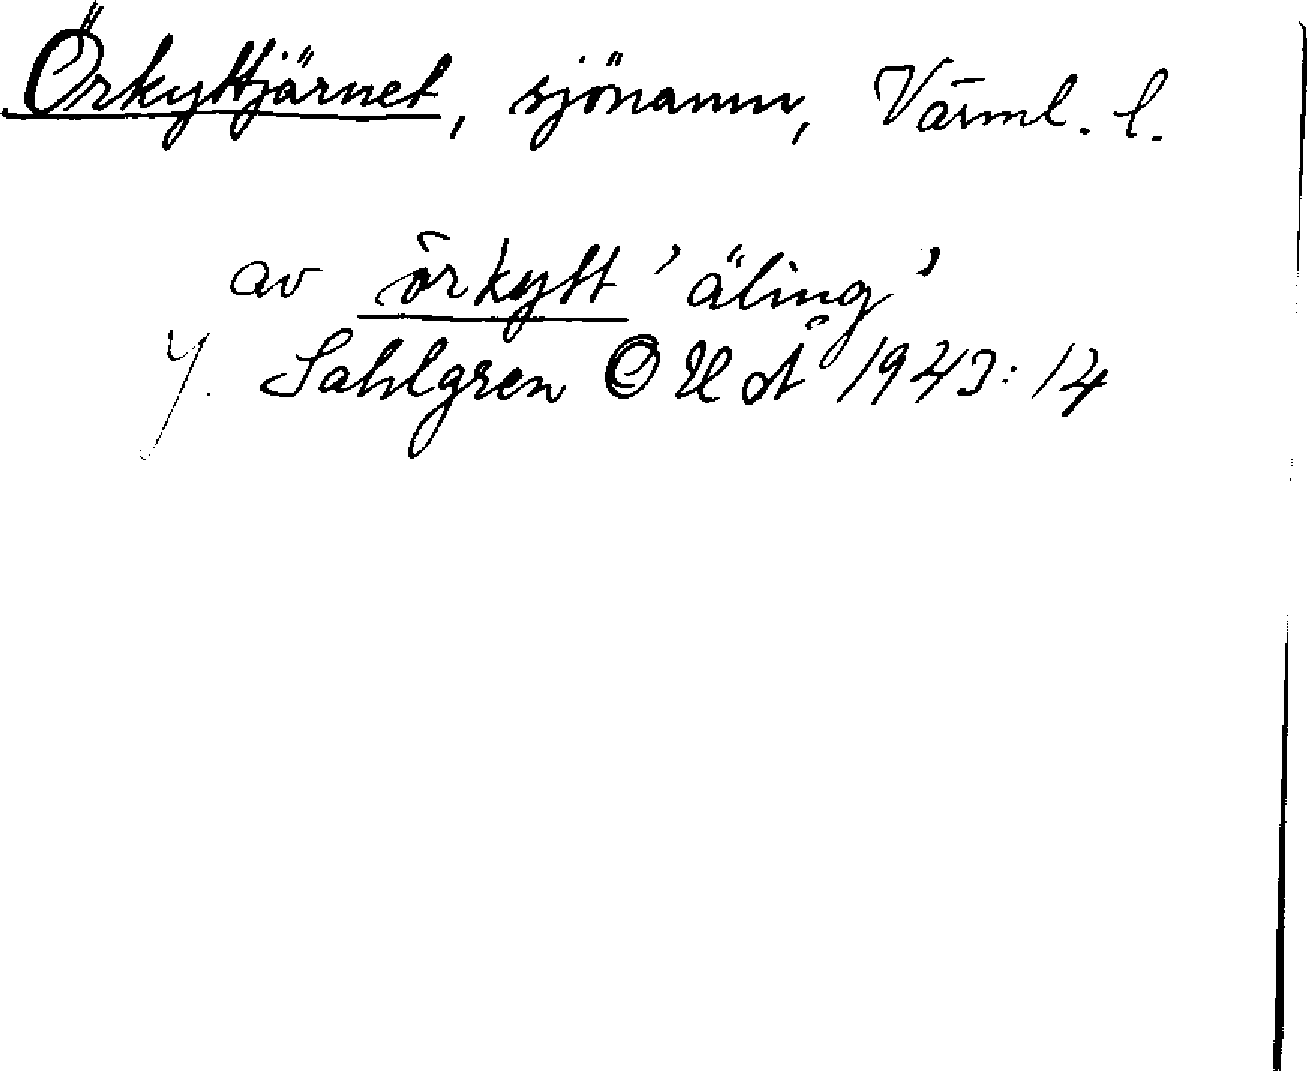 Örkyttjärnet, sjönamn, Värml. l.
av örkytt 'äling'
J. Sahlgren OUÅ 1943:14